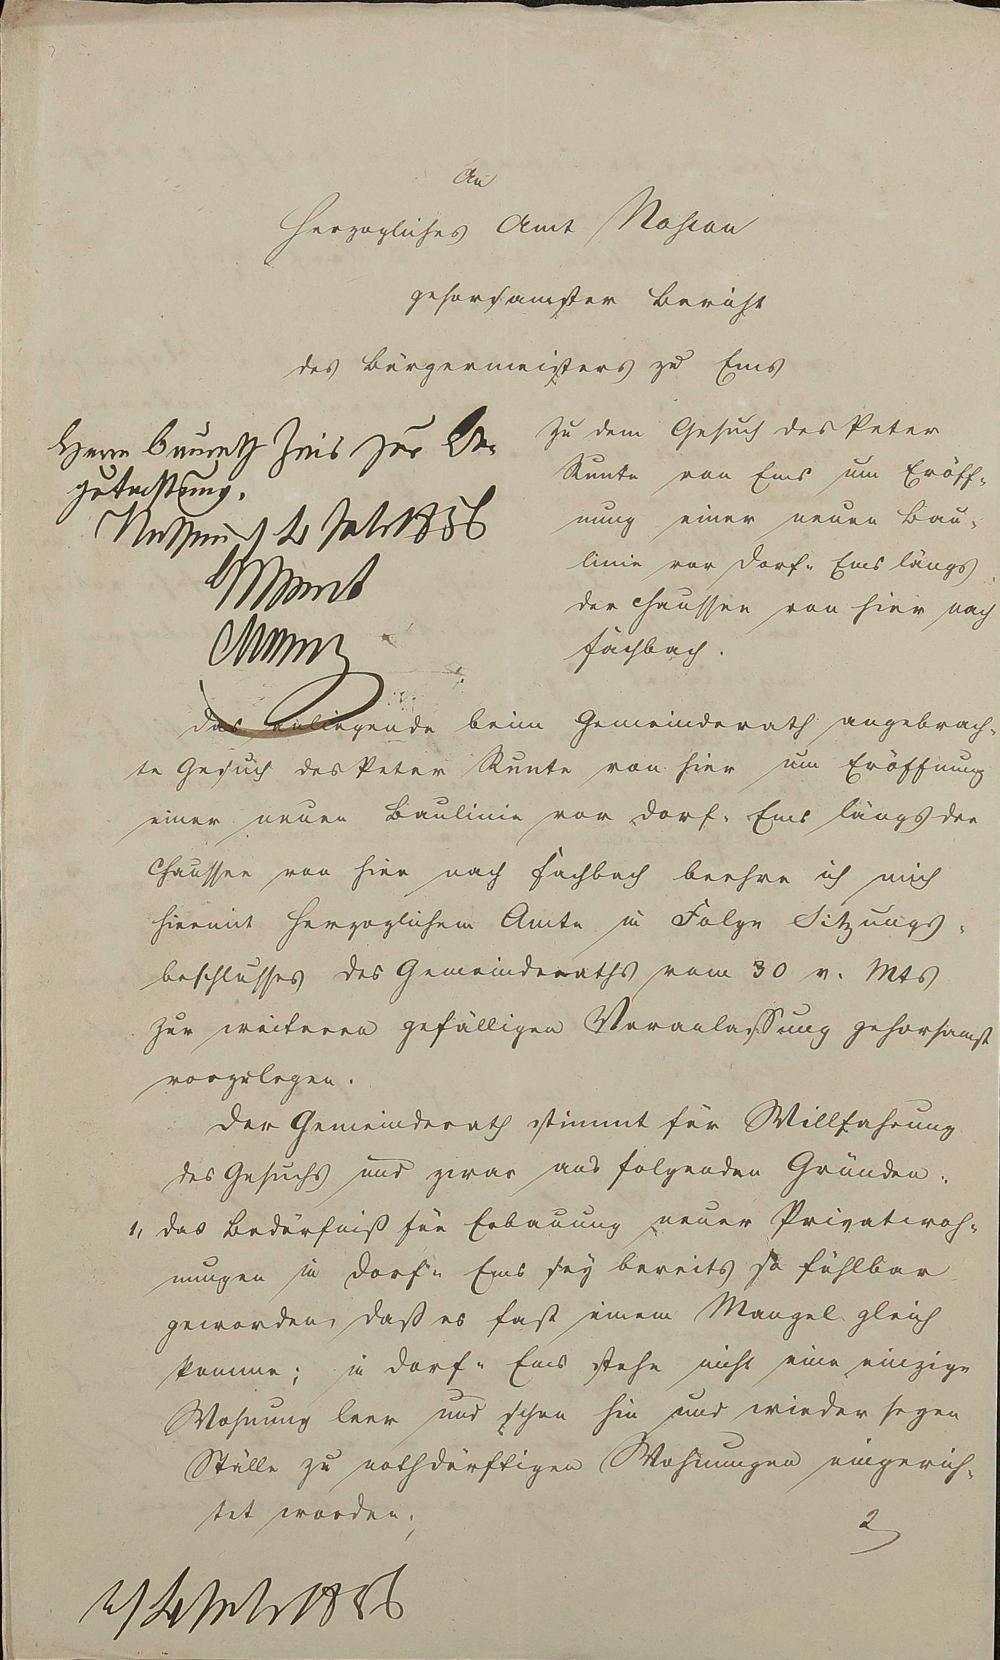 An
Herzogliches Amt Nassau
gehorsamster Bericht
des Bürgermeisters zu Ems
Herrn Baurath zur Be-
gutachtung.
Nassau
zu dem Gesuch des Peter
Kunte von Ems um Eröff-
nung einer neuen Bau-
linie vor Dorf-Ems längs
der Chaussee von hier nach
Fachbach.
Das anliegende beim Gemeinderath angebrach-
te Gesuch des Peter Kunte von hier um Eröffnung
einer neuen Baulinie vor Dorf-Ems längs der
Chaussee von hier nach Fachbach beehre ich mich
hiermit Herzoglichem Amte in Folge Sitzungs-
beschlusses des Gemeinderaths vom 30 v. Mts
zur weiteren gefälligen Veranlassung gehorsamst
vorzulegen.
Der Gemeinderath stimmt für Willfahrung
des Gesuchs und zwar aus folgenden Gründen:
1, das Bedürfniß für Erbauung neuer Privatwoh-
nungen in Dorf-Ems sey bereits so fühlbar
geworden, daß es fast einem Mangel gleich
komme; in Dorf-Ems stehe nicht eine einzige
Wohnung leer und schon hin und wieder seyen
Ställe zu nothdürftigen Wohnungen eingerich-
tet worden;
2